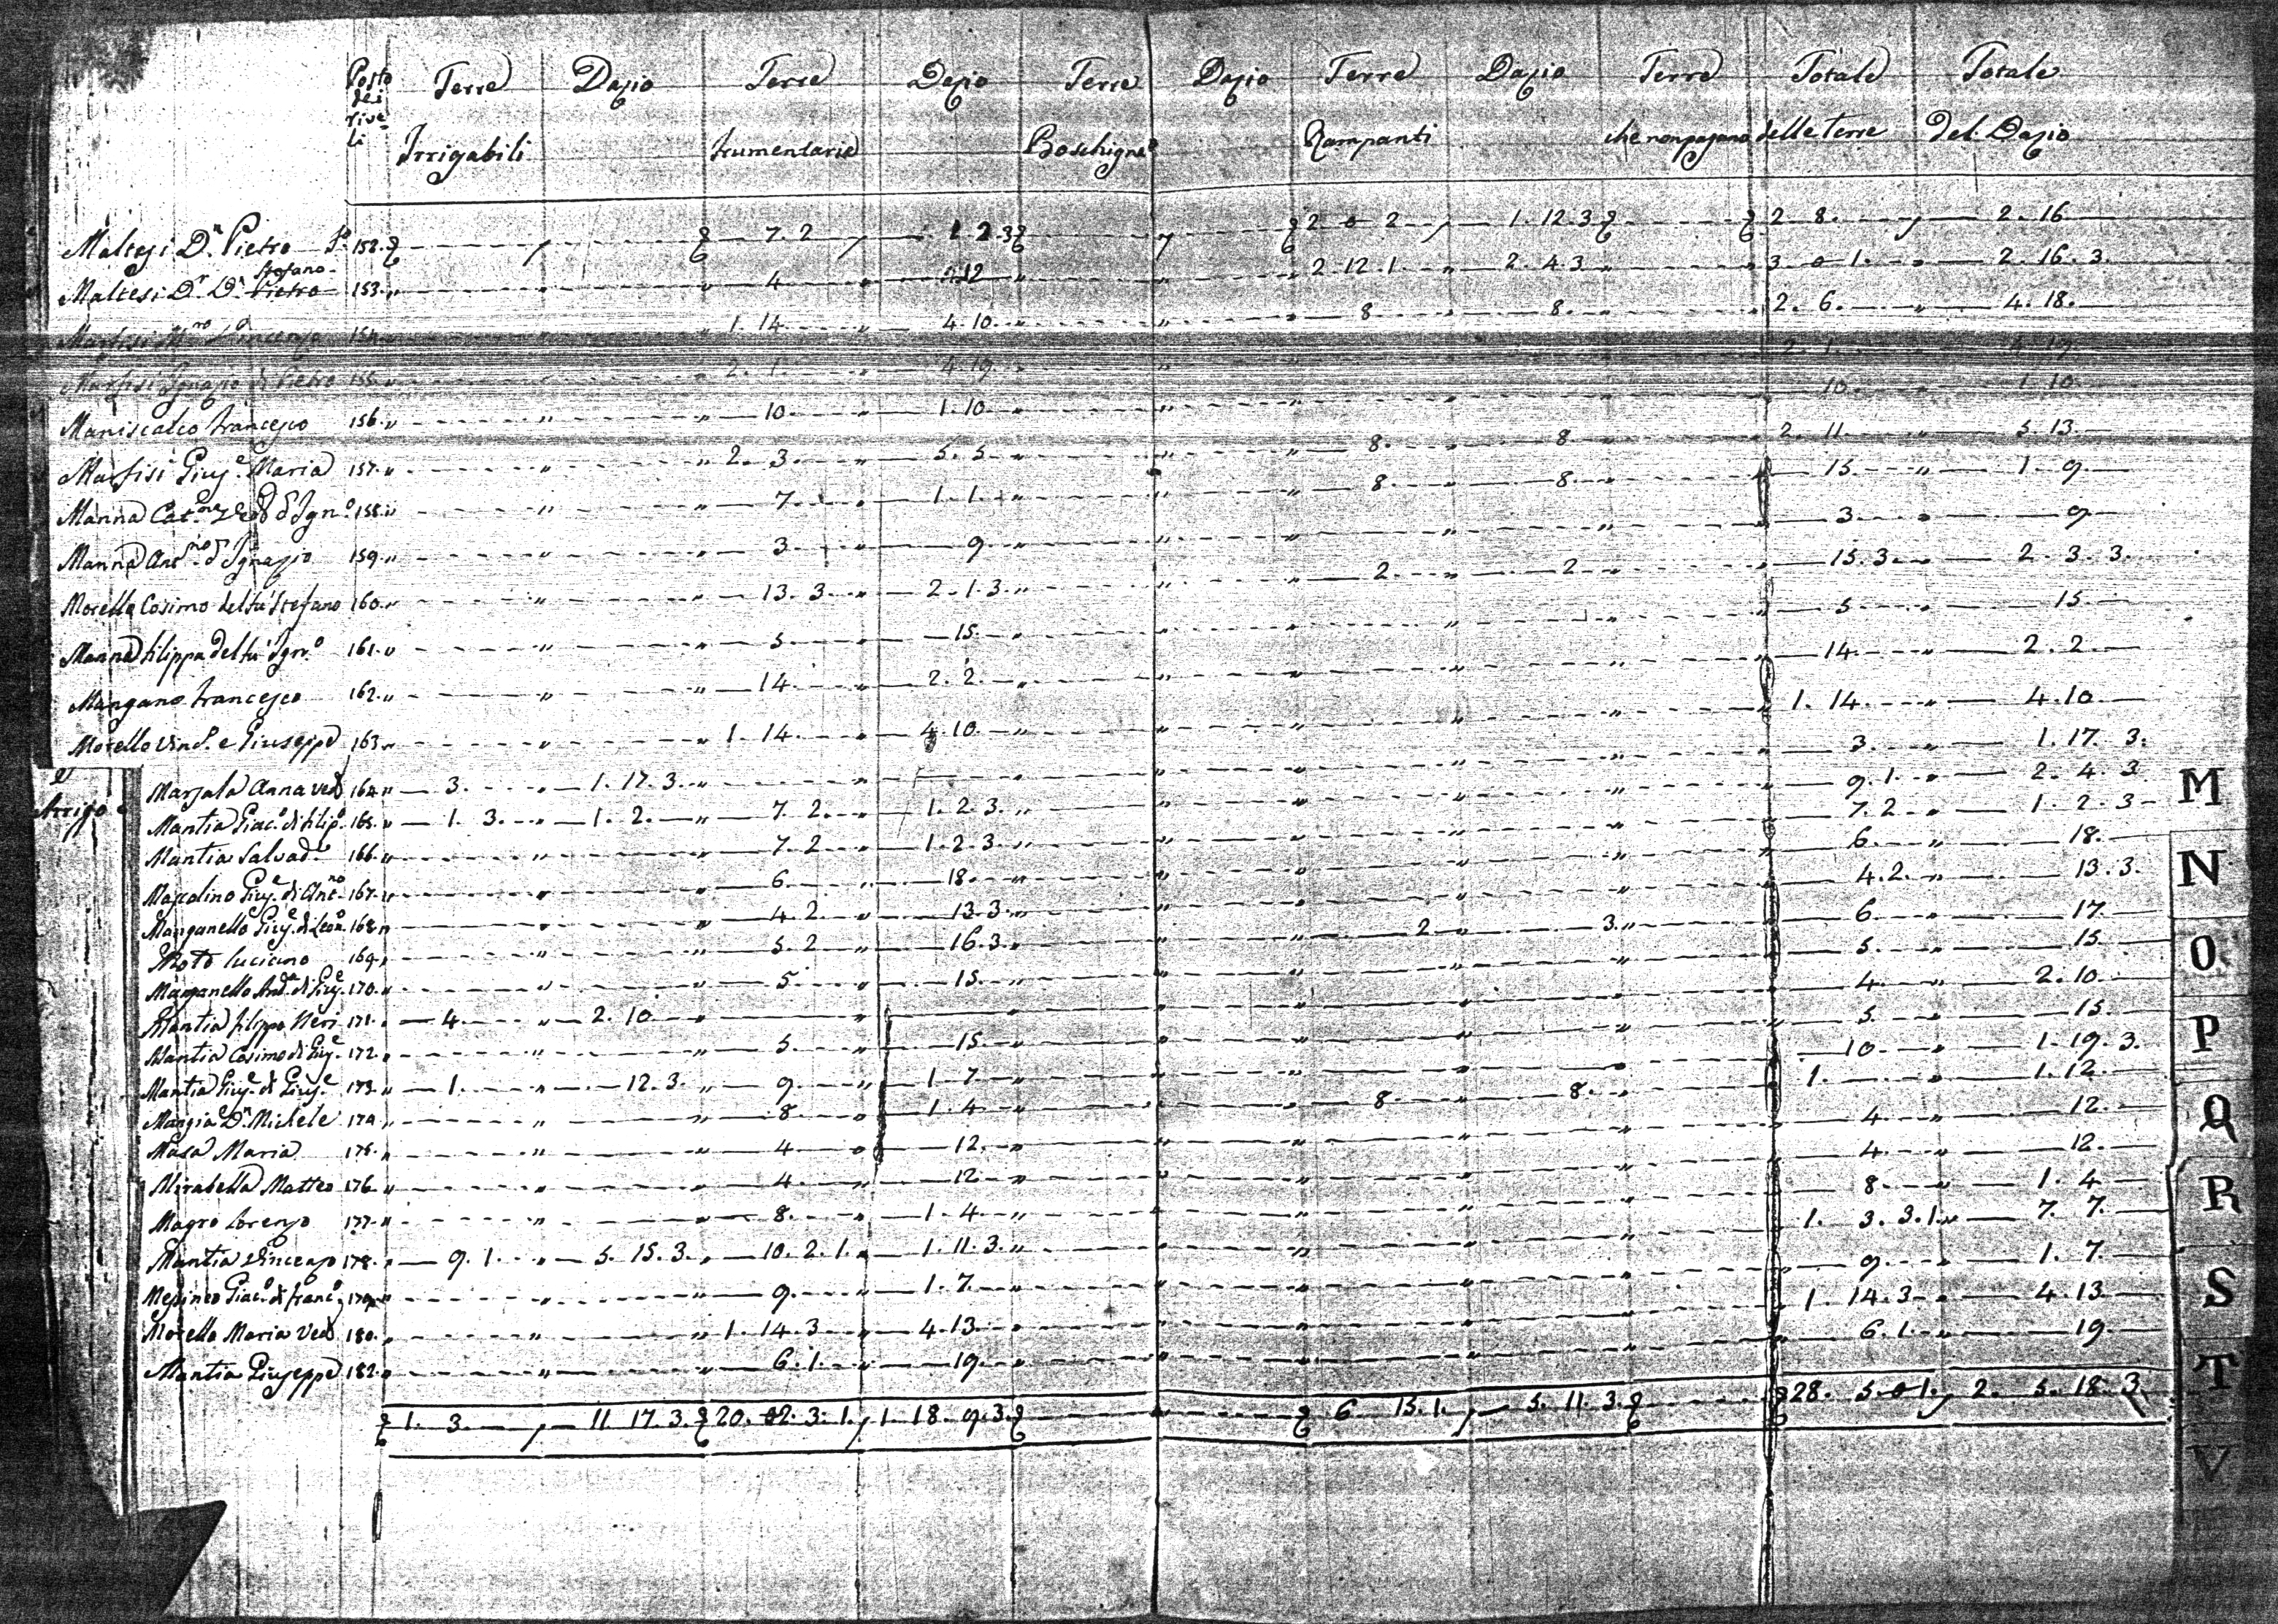 Posto dei riveli Terre Dazio Terre Dazio Terre Dazio Terre Dazio Terre Totale Totale
Irrigabili frumentarie Boschigne Rampanti che non pagano delle Terre del Dazio
Maltesi Dn. Pietro Po. 152. 7. 2 1 2. 3 2 0 2 1. 12. 3 2 8. 2. 16
Maltesi Dr. Dn. Pietro Stefano 153. 4 12 2. 12. 1. 2. 4. 3 3 0 1. 2. 16. 3.
Marfisi Mro Vincenzo 154. 1. 14 4. 10. 8 8. 2. 6. 4. 18.
Marfisi Ignazio di Pietro 155. 2. 1. 4. 19. 2. 1. 4. 19
Maniscalco Francesco 156. 10. 1. 10 10. 1. 10
Marfisi Giuse. Maria 157. 2. 3. 5. 5 8. 8 2. 11. 5. 13.
Manna Cat. Ign.o 158. 7. 1. 1. 8 8. 15. 1. 9.
Manna Antno. d Ignazio 159. 3 9 3. 9
Morello Cosimo del fu Stefano 160. 13. 3. 2. 1. 3. 2. 2 15. 3 2. 3. 3.
Manna Filippa del fu Ign.o 161. 5. 15. 5 15.
Mangano Francesco 162. 14. 2. 2. 14. 2. 2.
Morello Vinc. e Giuseppe 163. 1. 14. 4. 10. 1. 14. 4. 10
Arrigo
Marsala Anna ved 164. 3. 1. 17. 3. 3. 1. 17. 3.
Mantia Giac.o di Filip.o 165. 1. 3. 1. 2. 7. 2. 1. 2. 3. 9. 1. 2. 4. 3
Mantia Salvade. 166. 7. 2 1. 2. 3. 7. 2 1. 2. 3
Mascolino Giuse. di Antno. 167. 6. 18. 6. 18.
Manganello Giuse. di Leon. 168. 4. 2. 13. 3. 4. 2. 13. 3.
Moto Luciano 169. 5. 2 16. 3. 2 3. 6 17
Manganello And. di Giuse. 170. 5. 15. 5. 15
Mantia Filippo Neri 171. 4. 2. 10 4. 2. 10
Mantia Cosimo di Giuse. 172. 5. 15. 5. 15.
Mantia Giuse. di Giuse. 173. 1. 12. 3. 9. 1. 7. 10. 1. 19. 3.
Mangia Dn. Michele 174. 8. 1. 4 8 8. 1. 1. 12.
Masa Maria 175. 4 12. 4 12.
Mirabella Matteo 176 4. 12 4. 12.
Magro Lorenzo 177. 8. 1. 4 8. 1. 4
Mantia Vincenzo 178. 9. 1. 5. 15. 3. 10. 2. 1. 1. 11. 3. 1. 3. 3. 1. 7. 7.
Messineo Giac.o di Franc.o 179. 9. 1. 7. 9. 1. 7.
Morello Maria Ved 180. 1. 14. 3 4. 13 1. 14. 3 4. 13.
Mantia Giuseppe 182. 6. 1. 19. 6. 1. 19.
1. 3. 11 17. 3. 20. 2. 3. 1. 1. 18. 9. 3. 6 15. 1. 5. 11. 3. 28. 5. 0 1. 2. 5. 18. 3
M
N
O
P
Q
R
S
T
V